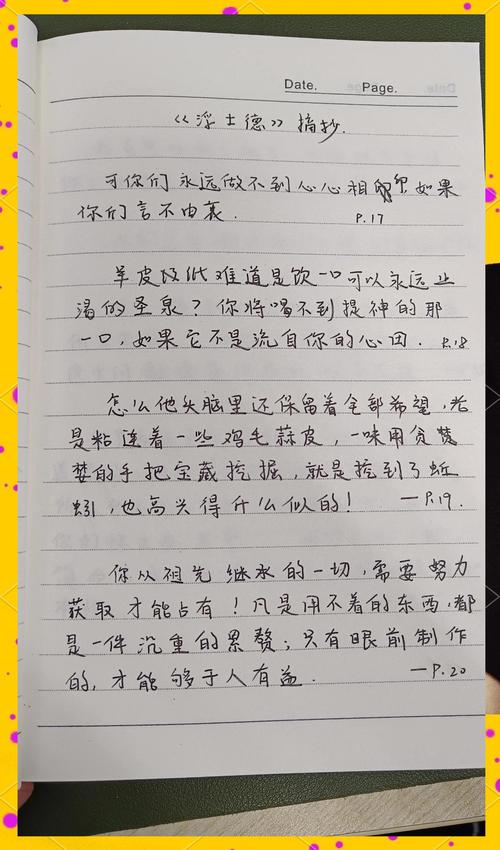 Date. Page.
《浮士德》摘抄.
可你们永远做不到心心相印,如果
你们言不由衷. P.17
羊皮纸难道是饮一口可以永远止
渴的圣泉？你将喝不到提神的那
一口,如果它不是流自你的心田. P.18
怎么他头脑里还保留着全部希望,老
是粘连着一些鸡毛蒜皮,一味用贪婪
的手把宝藏挖掘,就是挖到了蚯
蚓,也高兴得什么似的！ —P.19.
你从祖先继承的一切,需要努力
获取才能占有！凡是用不着的东西,都
是一件沉重的累赘；只有眼前制作
的,才能够于人有益. —P.20